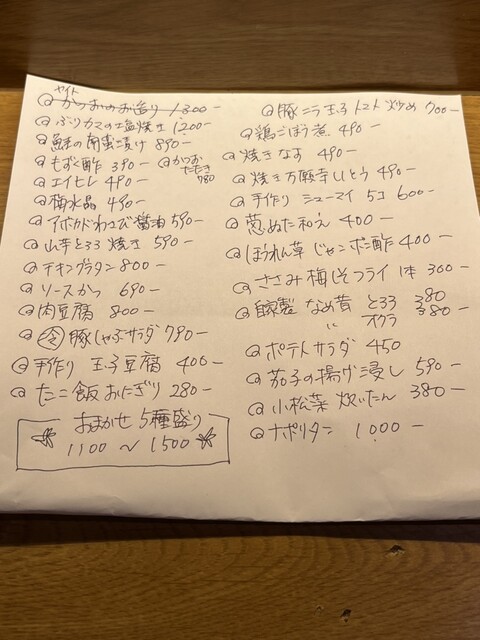 ヤイト
@ かつおのお造り 1300-
@ ぶりカマの塩焼き 1200-
@ 鮭の南蛮漬け 890-
@ もずく酢 390- @ かつおたたき 980
@ エイヒレ 490-
@ 梅水晶 490-
@ アボカドわさび醤油 590-
@ 山芋とろろ焼き 590-
@ チキングラタン 800-
@ ソースカツ 690-
@ 肉豆腐 800-
@ 冷 豚しゃぶサラダ 790-
@ 手作り 玉子豆腐 400-
@ たこ飯おにぎり 280-
おまかせ 5種盛り
1100 ~ 1500
@ 豚ニラ玉子トマト炒め 700-
@ 鶏ごぼう煮 490-
@ 焼きなす 490-
@ 焼き万願寺しとう 490-
@ 手作り シューマイ 5コ 600-
@ 葱ぬた和え 400-
@ ほうれん草 じゃこポン酢 400-
@ ささみ梅しそフライ 1本 300-
@ 自家製 なめ茸 とろろ 380
〃 オクラ 380-
@ ポテトサラダ 450
@ 茄子の揚げ浸し 590-
@ 小松菜 炊いたん 380-
@ ナポリタン 1000-